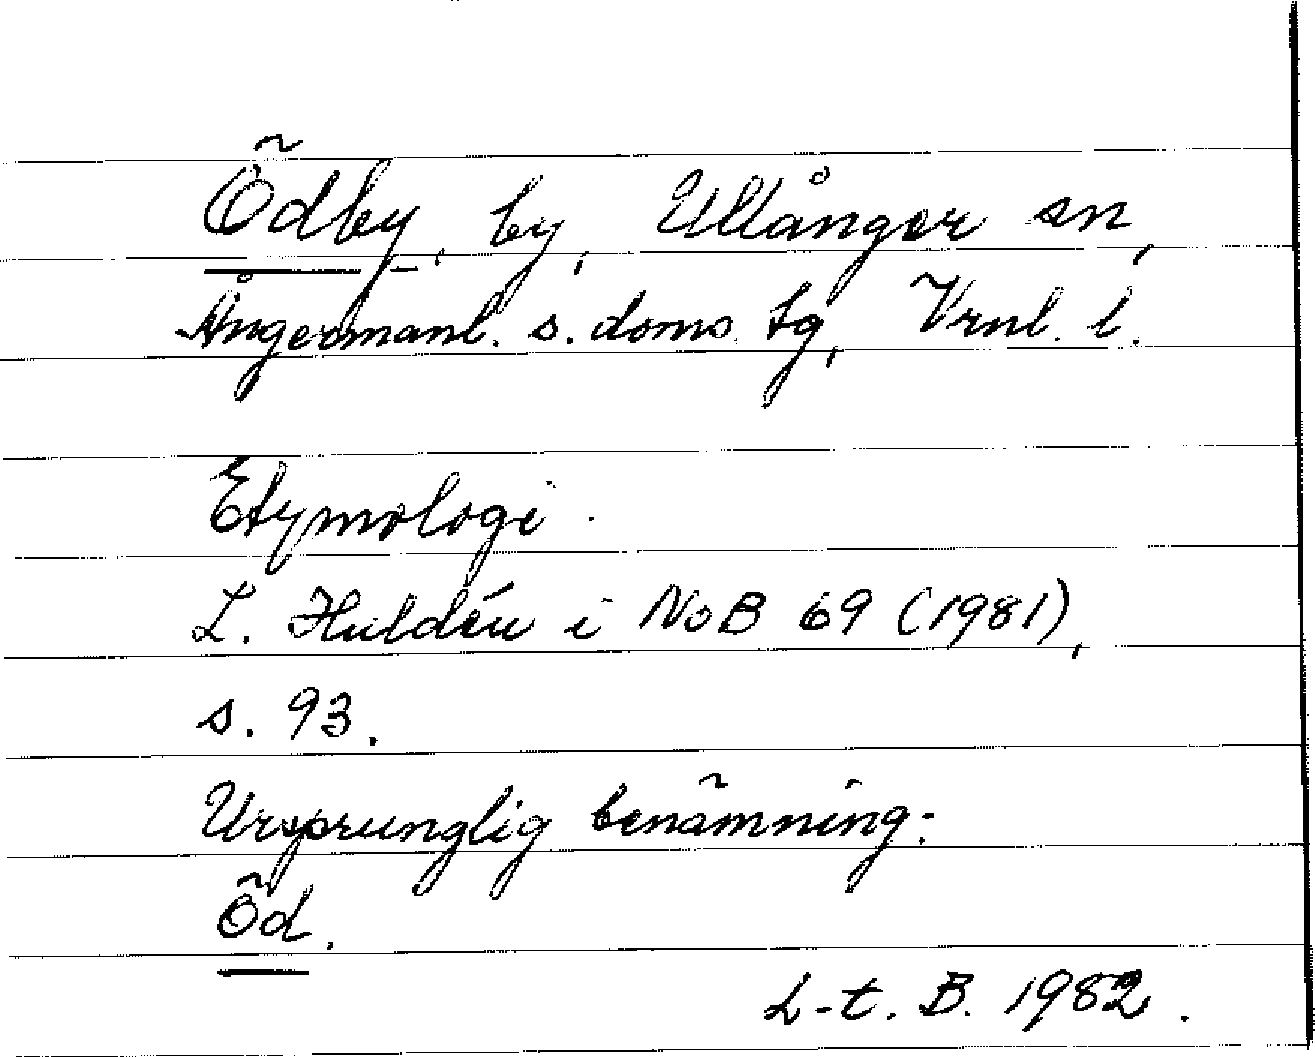 Ödby, by, Ullånger sn,
Ångermanl. s. doms. tg, Vrnl. l.
Etymologi.
L. Huldén i NoB 69 (1981),
s. 93.
Ursprunglig benämning:
Öd.
L-t. B. 1982.